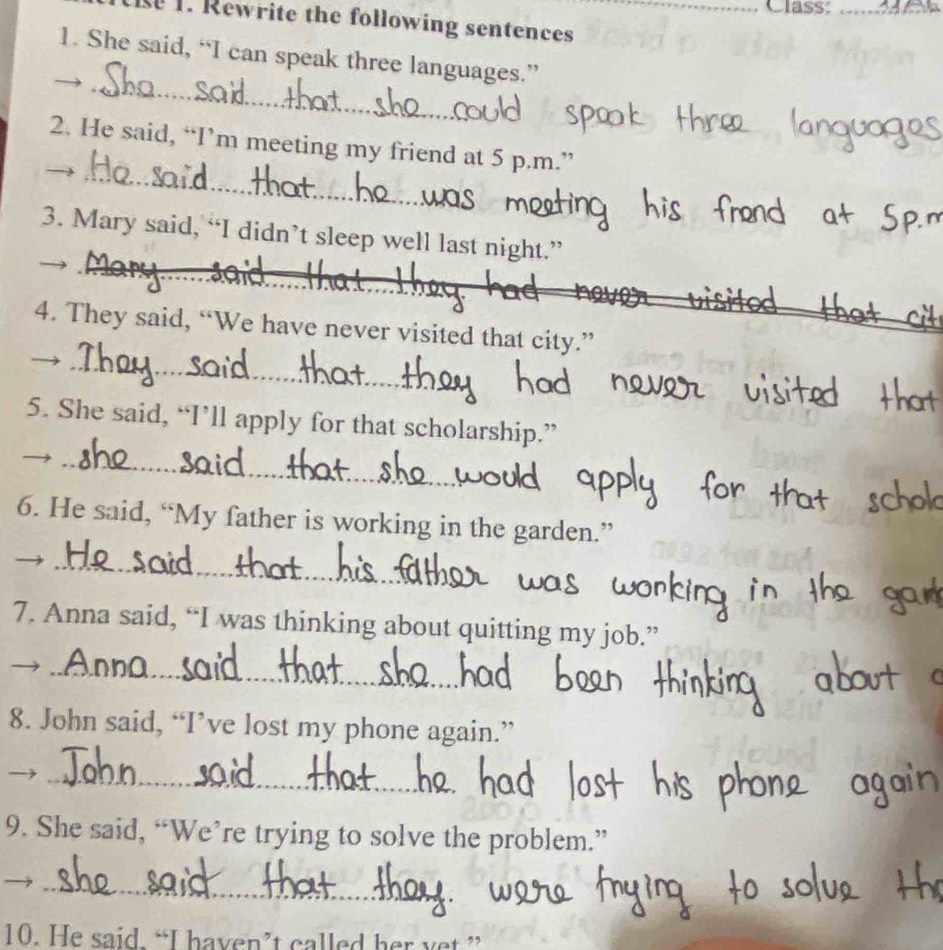 1. Rewrite the following sentences
Class:
1. She said, “I can speak three languages.”
→ She said that she could speak three languages
2. He said, “I’m meeting my friend at 5 p.m.”
→ He said that he was meeting his frend at 5p.m
3. Mary said, “I didn’t sleep well last night.”
→ Mary said that they had never visited that city
4. They said, “We have never visited that city.”
→ They said that they had never visited that
5. She said, “I’ll apply for that scholarship.”
→ she said that she would apply for that schola
6. He said, “My father is working in the garden.”
→ He said that his father was working in the gard
7. Anna said, “I was thinking about quitting my job.”
→ Anna said that she had been thinking about
8. John said, “I’ve lost my phone again.”
→ John said that he had lost his phone again
9. She said, “We’re trying to solve the problem.”
→ she said that they were trying to solve the
10. He said, “I haven’t called her yet.”